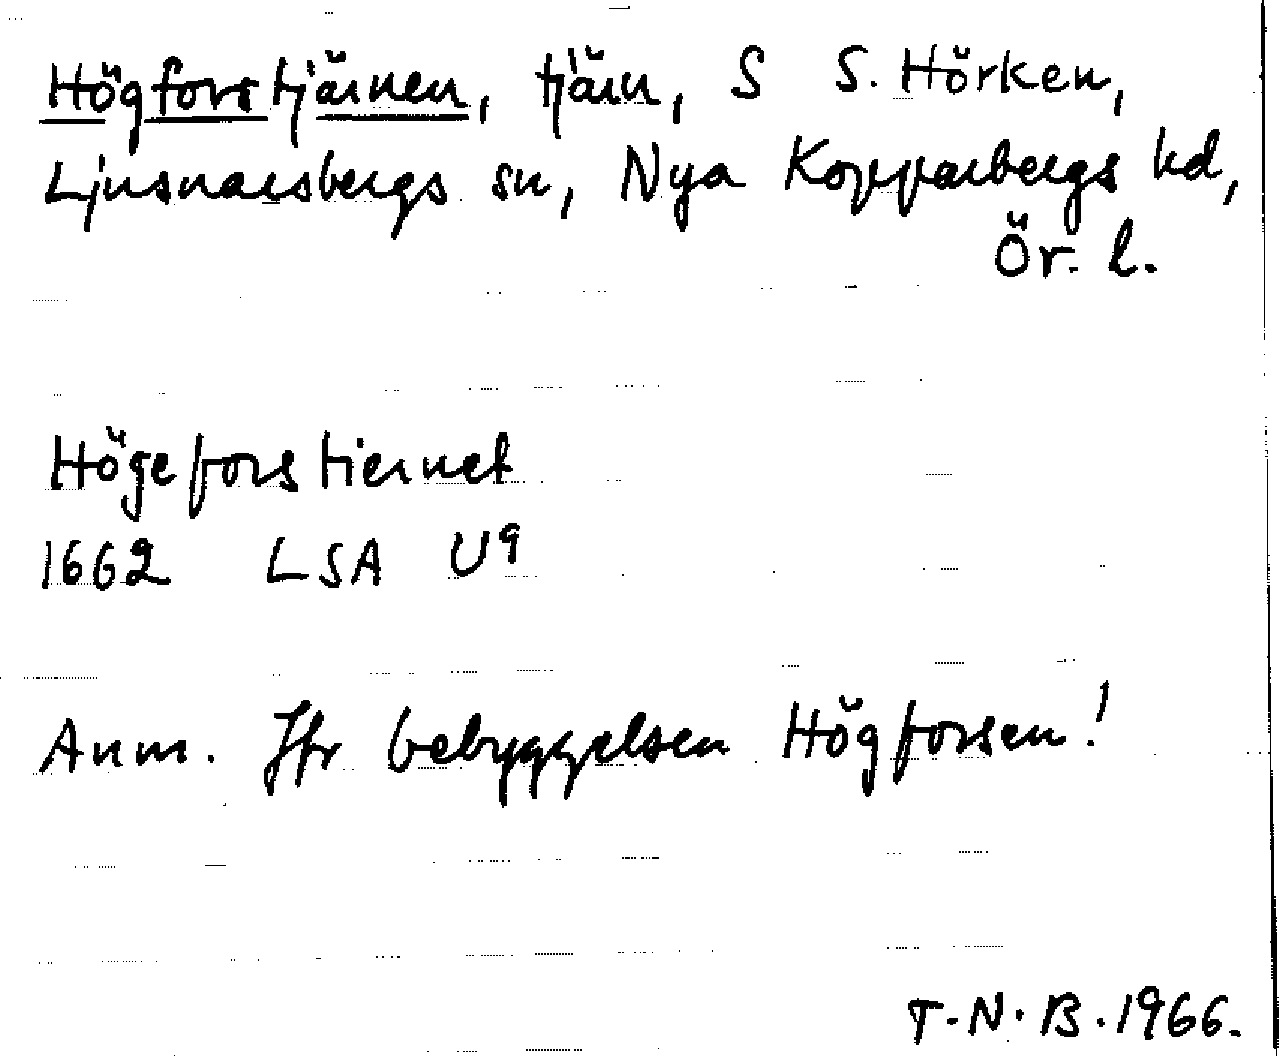 Högforstjärnen, tjärn, S S. Hörken,
Ljusnarsbergs sn, Nya Kopparbergs hd,
Ör. l.
Högefors tiernet
1662 LSA U9
Anm. Jfr bebyggelsen Högforsen!
T.N.B. 1966.